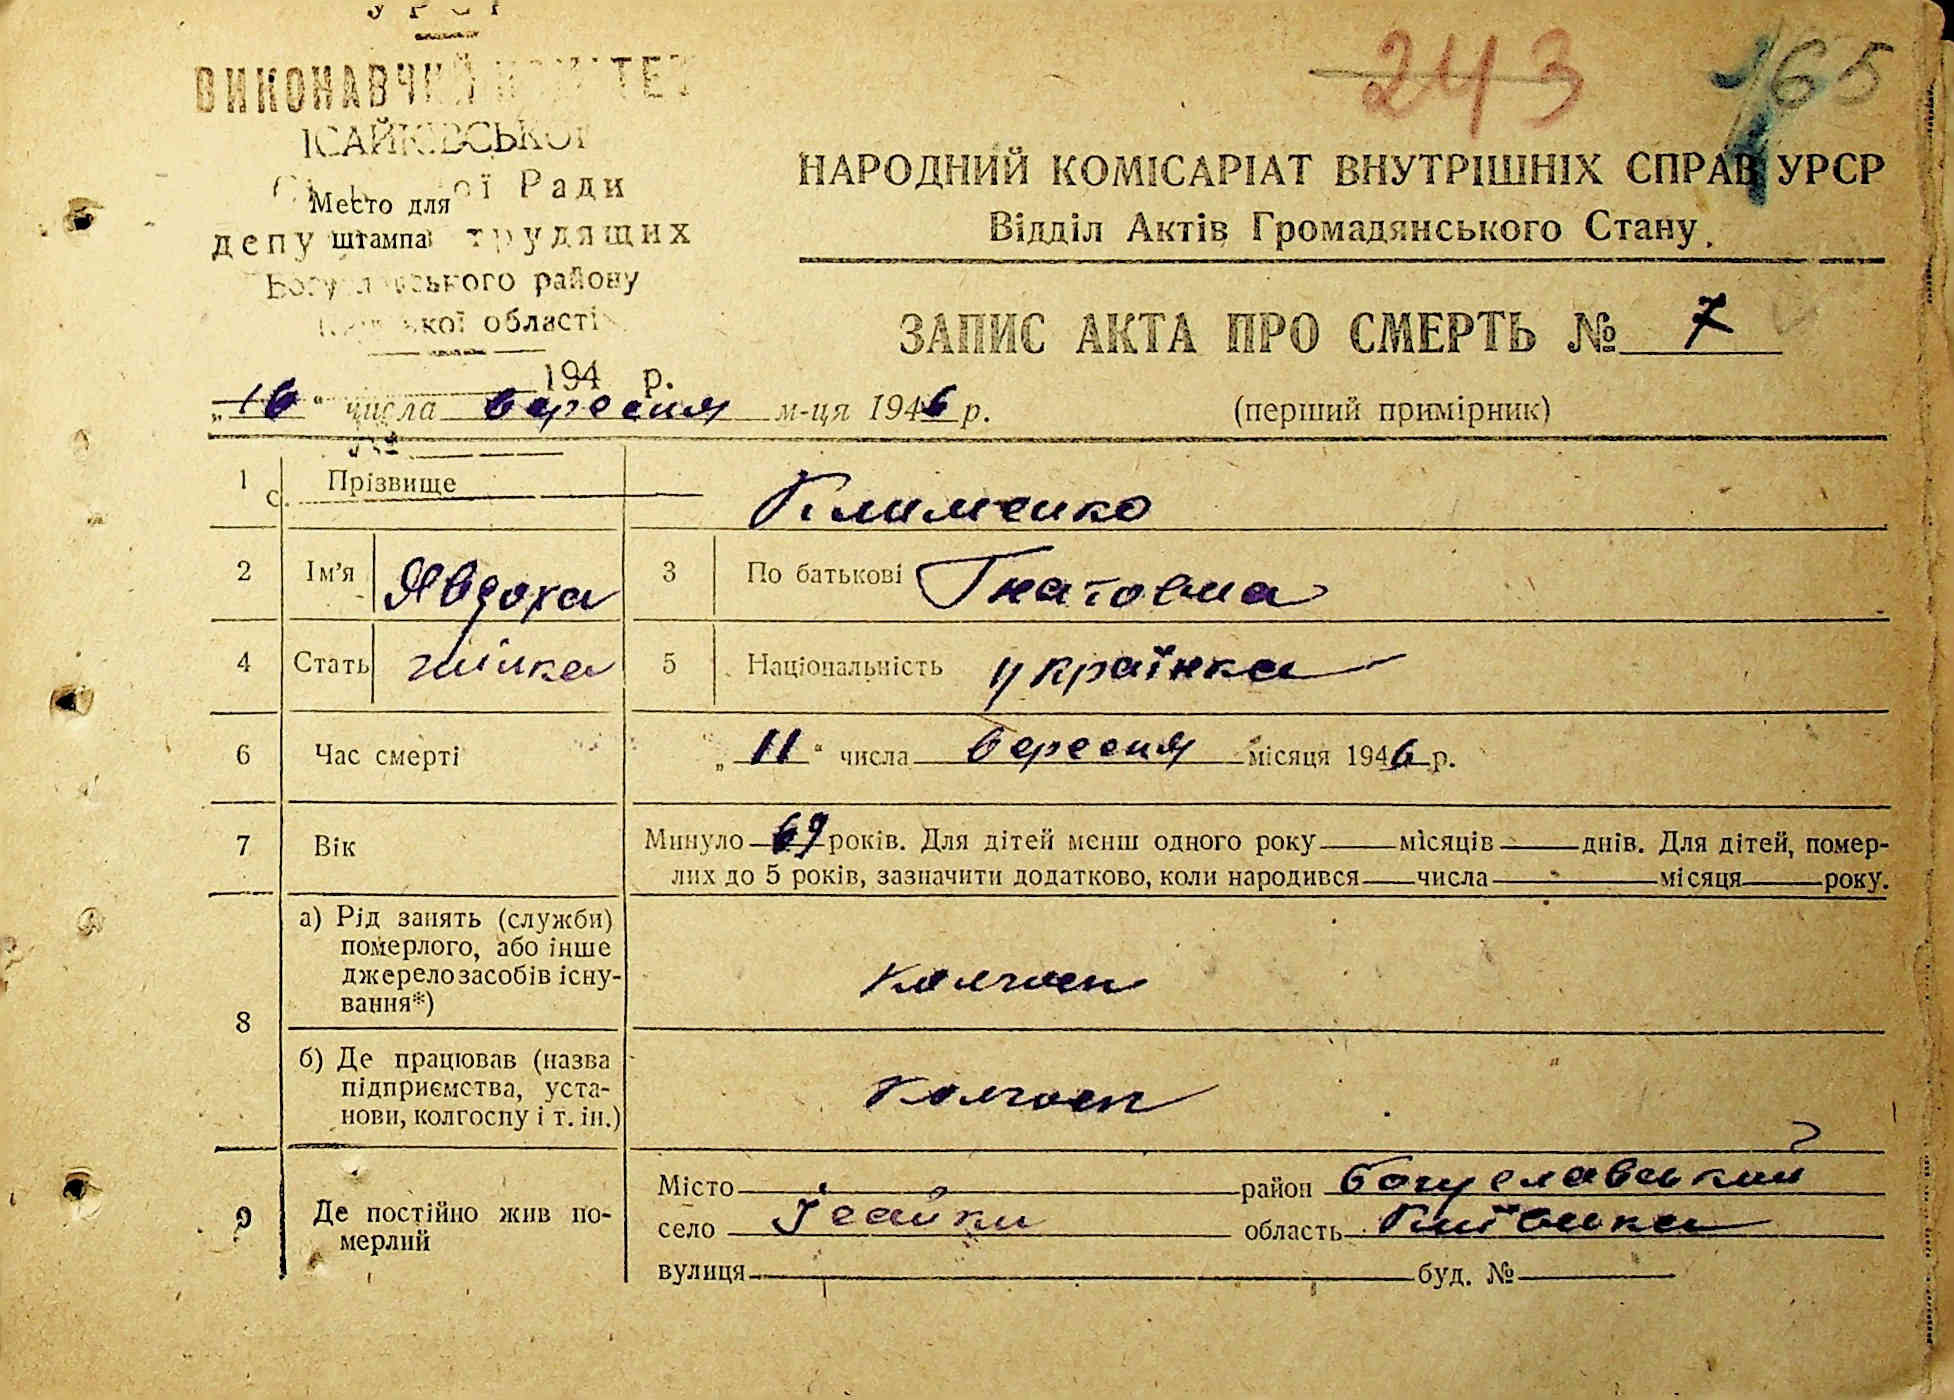 УРСР
ВИКОНАВЧИЙ КОМІТЕТ
ІСАЙКІВСЬКОЇ
Ради
Место для
штампа
депу трудящих
Богуславського району
Київської області
194 р.
243
165
НАРОДНИЙ КОМІСАРІАТ ВНУТРІШНІХ СПРАВ УРСР
Відділ Актів Громадянського Стану.
ЗАПИС АКТА ПРО СМЕРТЬ № 7
„16“ числа вересня м-ця 1946 р.
(перший примірник)
1 Прізвище Клименко
2 Ім'я Явдоха 3 По батькові Гнатовна
4 Стать жінка 5 Національність українка
6 Час смерті „11“ числа вересня місяця 1946 р.
7 Вік Минуло 69 років. Для дітей менш одного року місяців днів. Для дітей, помер-
лих до 5 років, зазначити додатково, коли народився числа місяця року.
8 а) Рід занять (служби)
померлого, або інше
джерело засобів існу-
вання*)
колгосп
б) Де працював (назва
підприємства, уста-
нови, колгоспу і т. ін.)
колгосп
9 Де постійно жив по-
мерлий
Місто район Богуславський
село Ісайки область Київська
вулиця буд. №